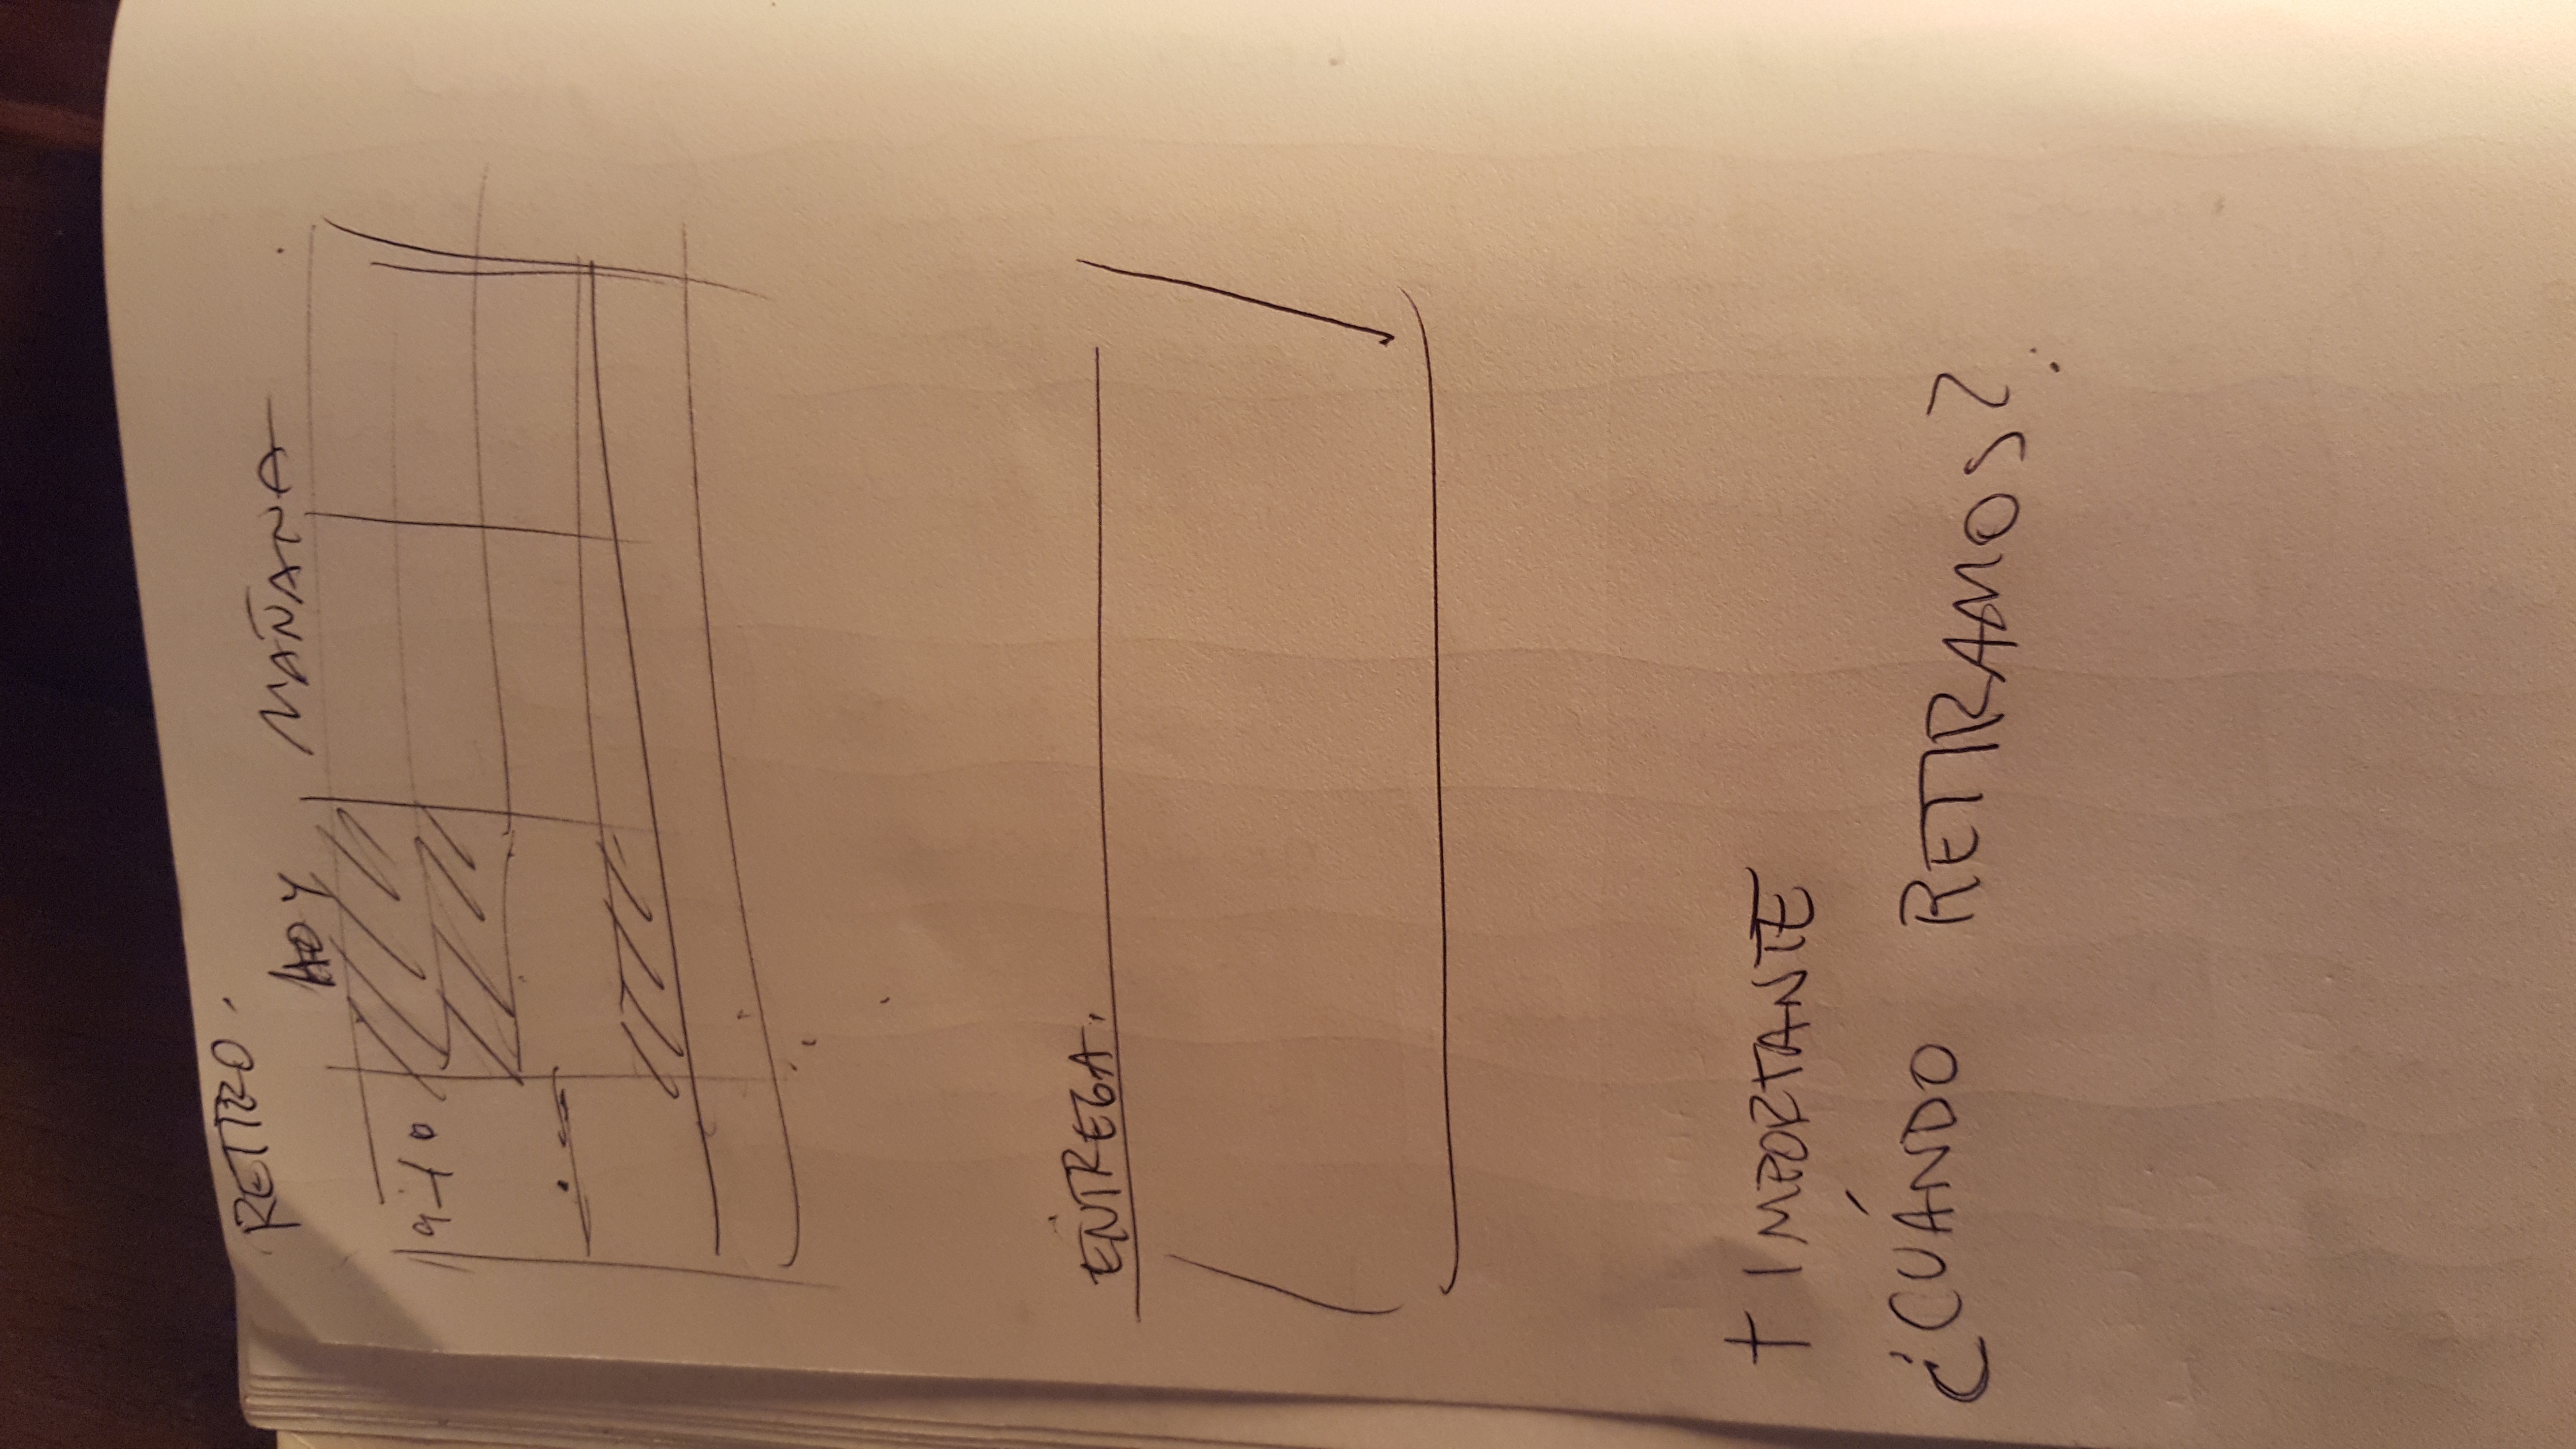 RETIRO.
HOY MAÑANA
9-10
ENTREGA.
+ IMPORTANTE
¿CUÁNDO RETIRAMOS?